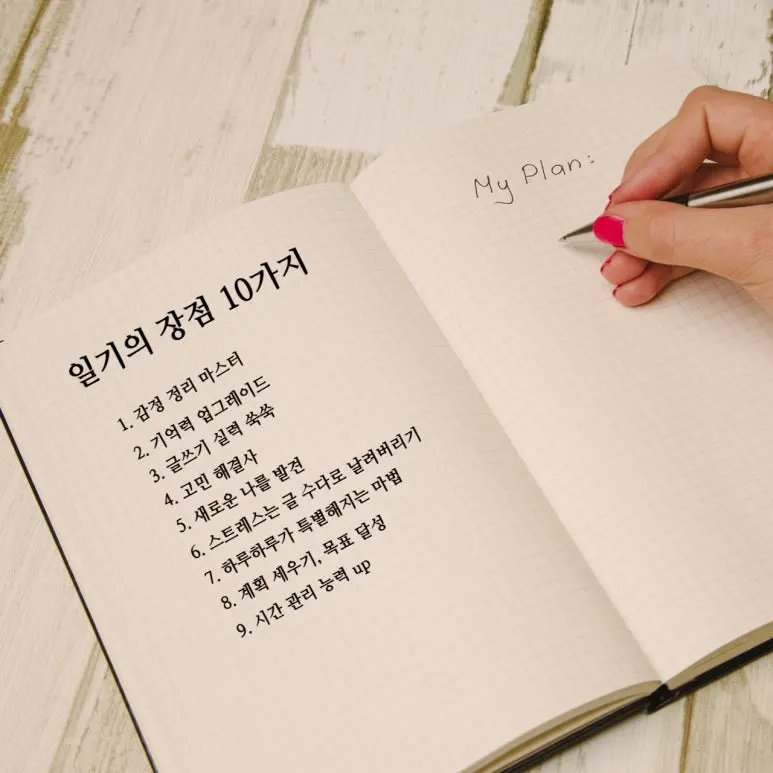 일기의 장점 10가지
1. 감정 정리 마스터
2. 기억력 업그레이드
3. 글쓰기 실력 쑥쑥
4. 고민 해결사
5. 새로운 나를 발견
6. 스트레스는 글 수다로 날려버리기
7. 하루하루가 특별해지는 마법
8. 계획 세우기, 목표 달성
9. 시간 관리 능력 up
My Plan: